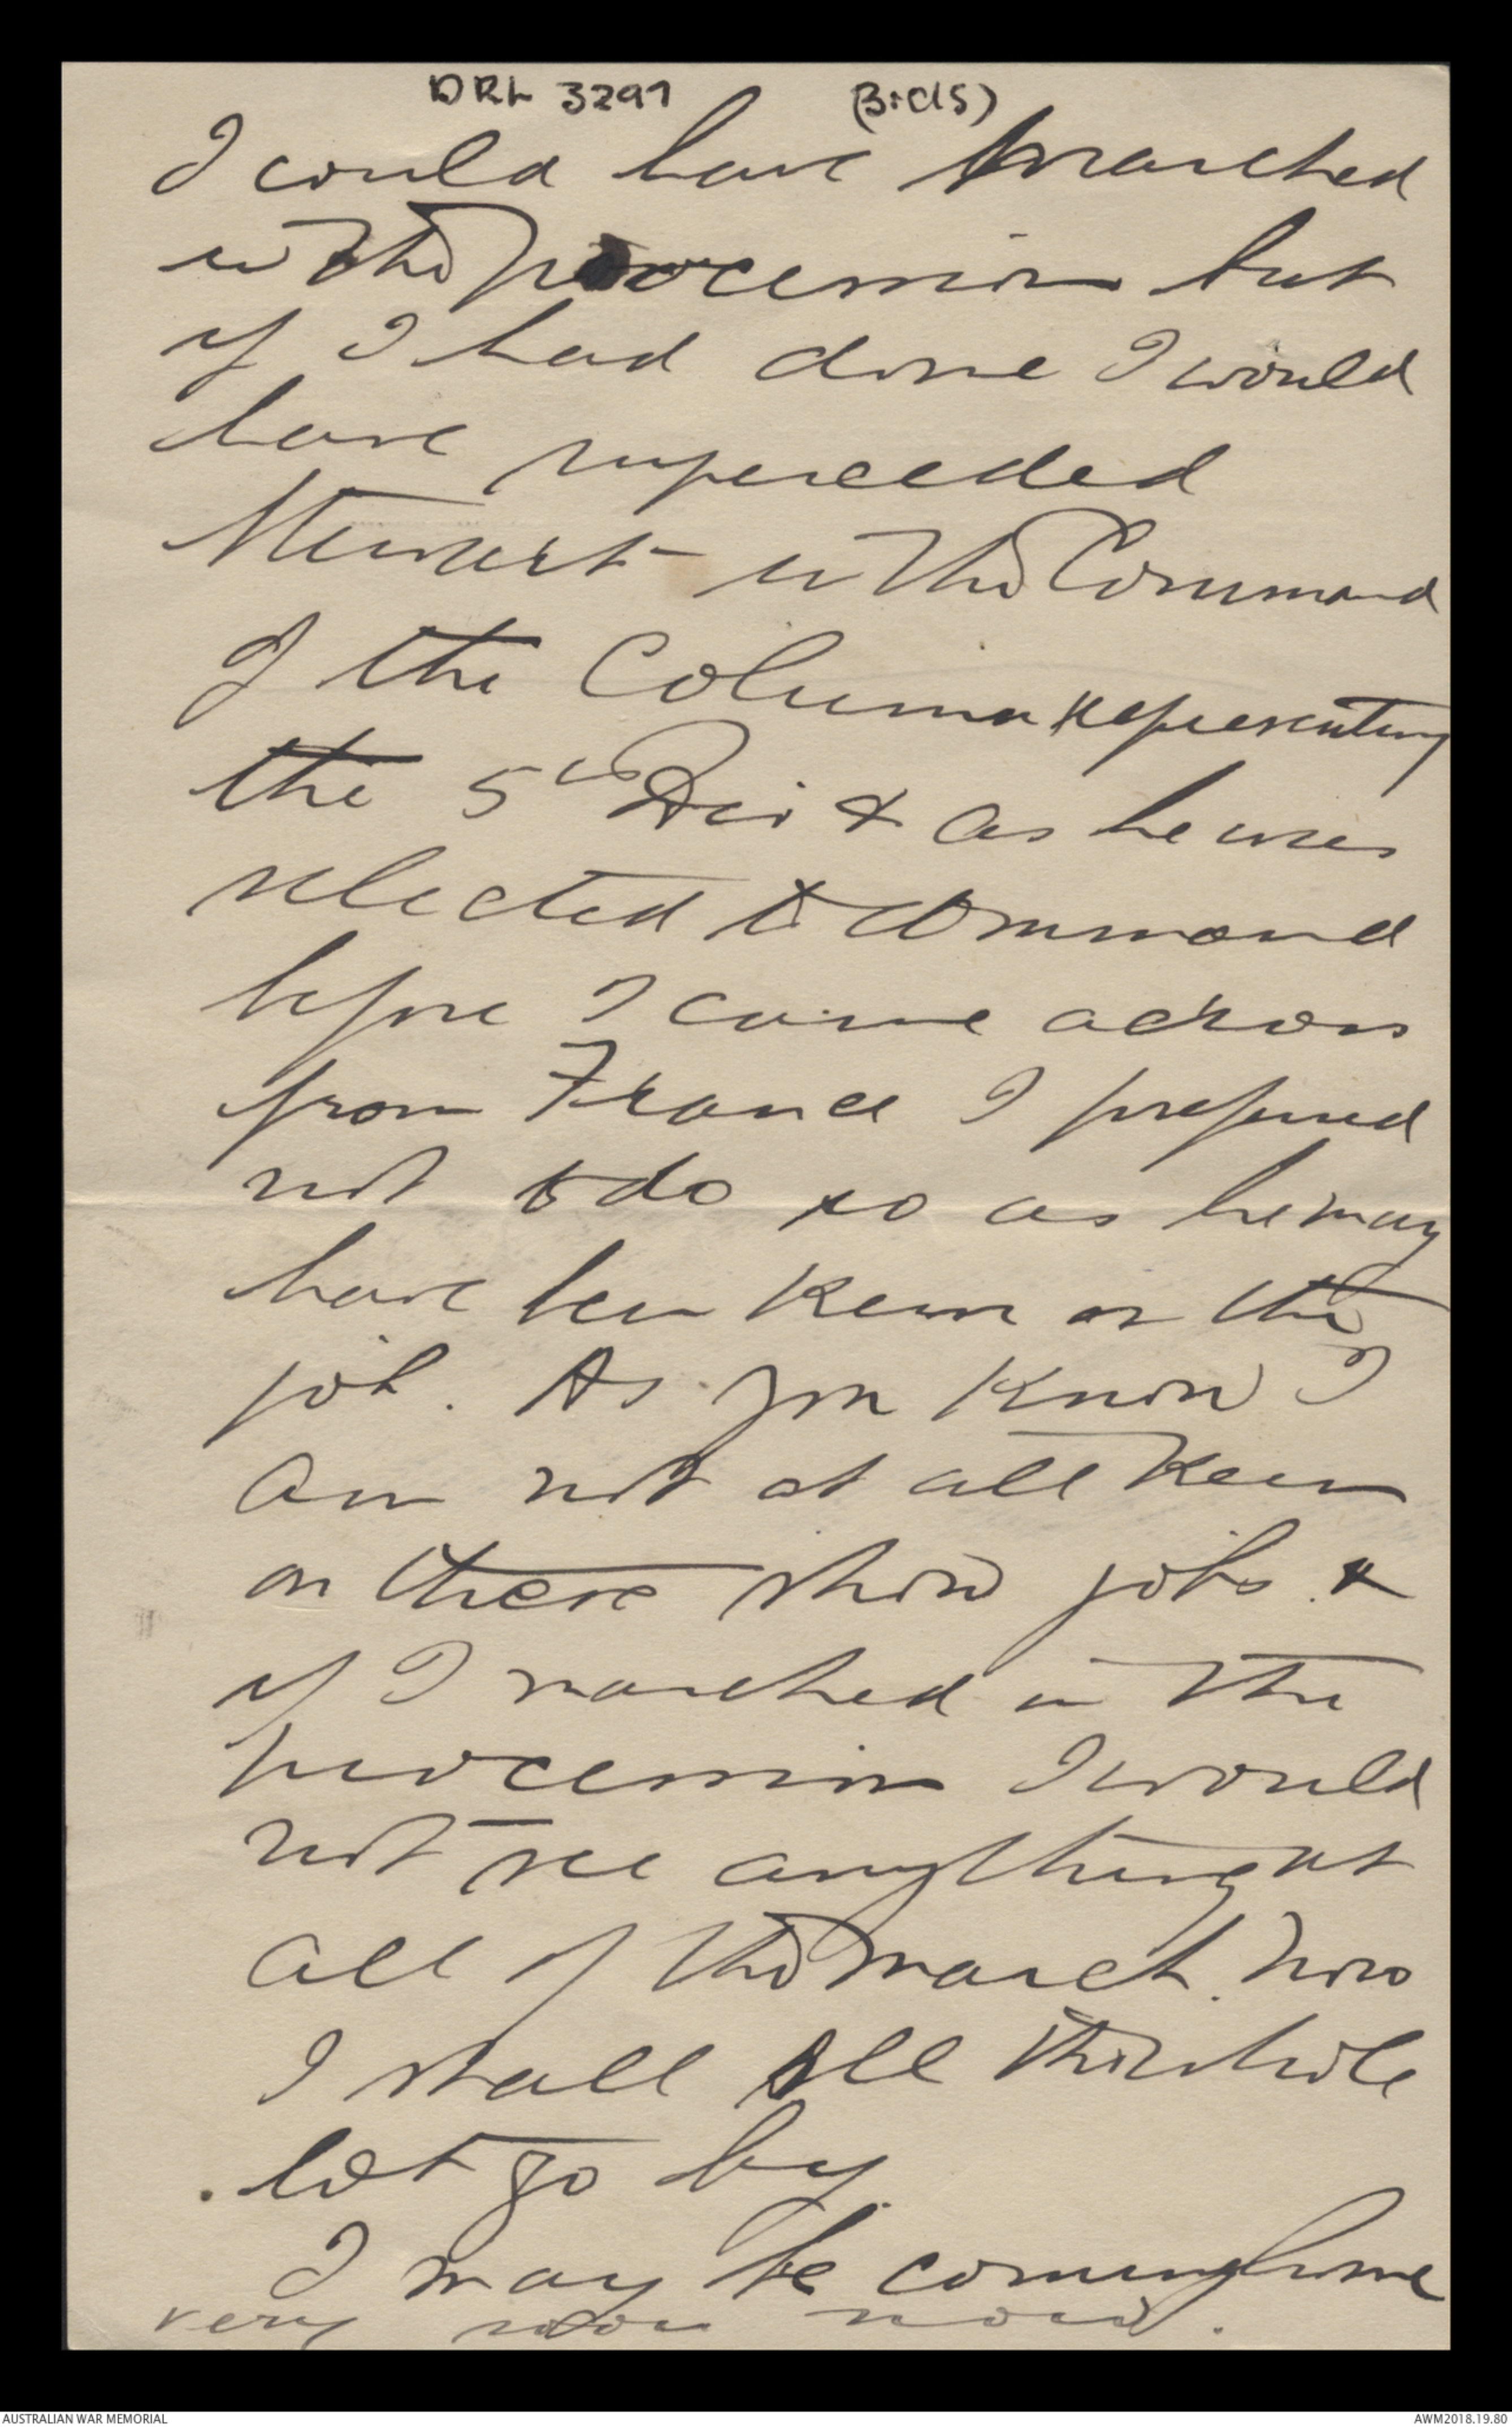 DRL 3297 (3rdls)
I could have marched
in the procession but
if I had done I would
have superceeded
Stewart in the Command
of the Column representing
the 5th Div & as he was
selected to command
before I came across
from France I prefered
not to do so as he may
have been keen on the
job. As you know I
am not at all keen
on these show jobs &
if I marched in the
procession I would
not see anything at
all of the march. Now
I shall see the whole
lot go by.
I may be coming home
very soon now.
AUSTRALIAN WAR MEMORIAL
AWM2018.19.80